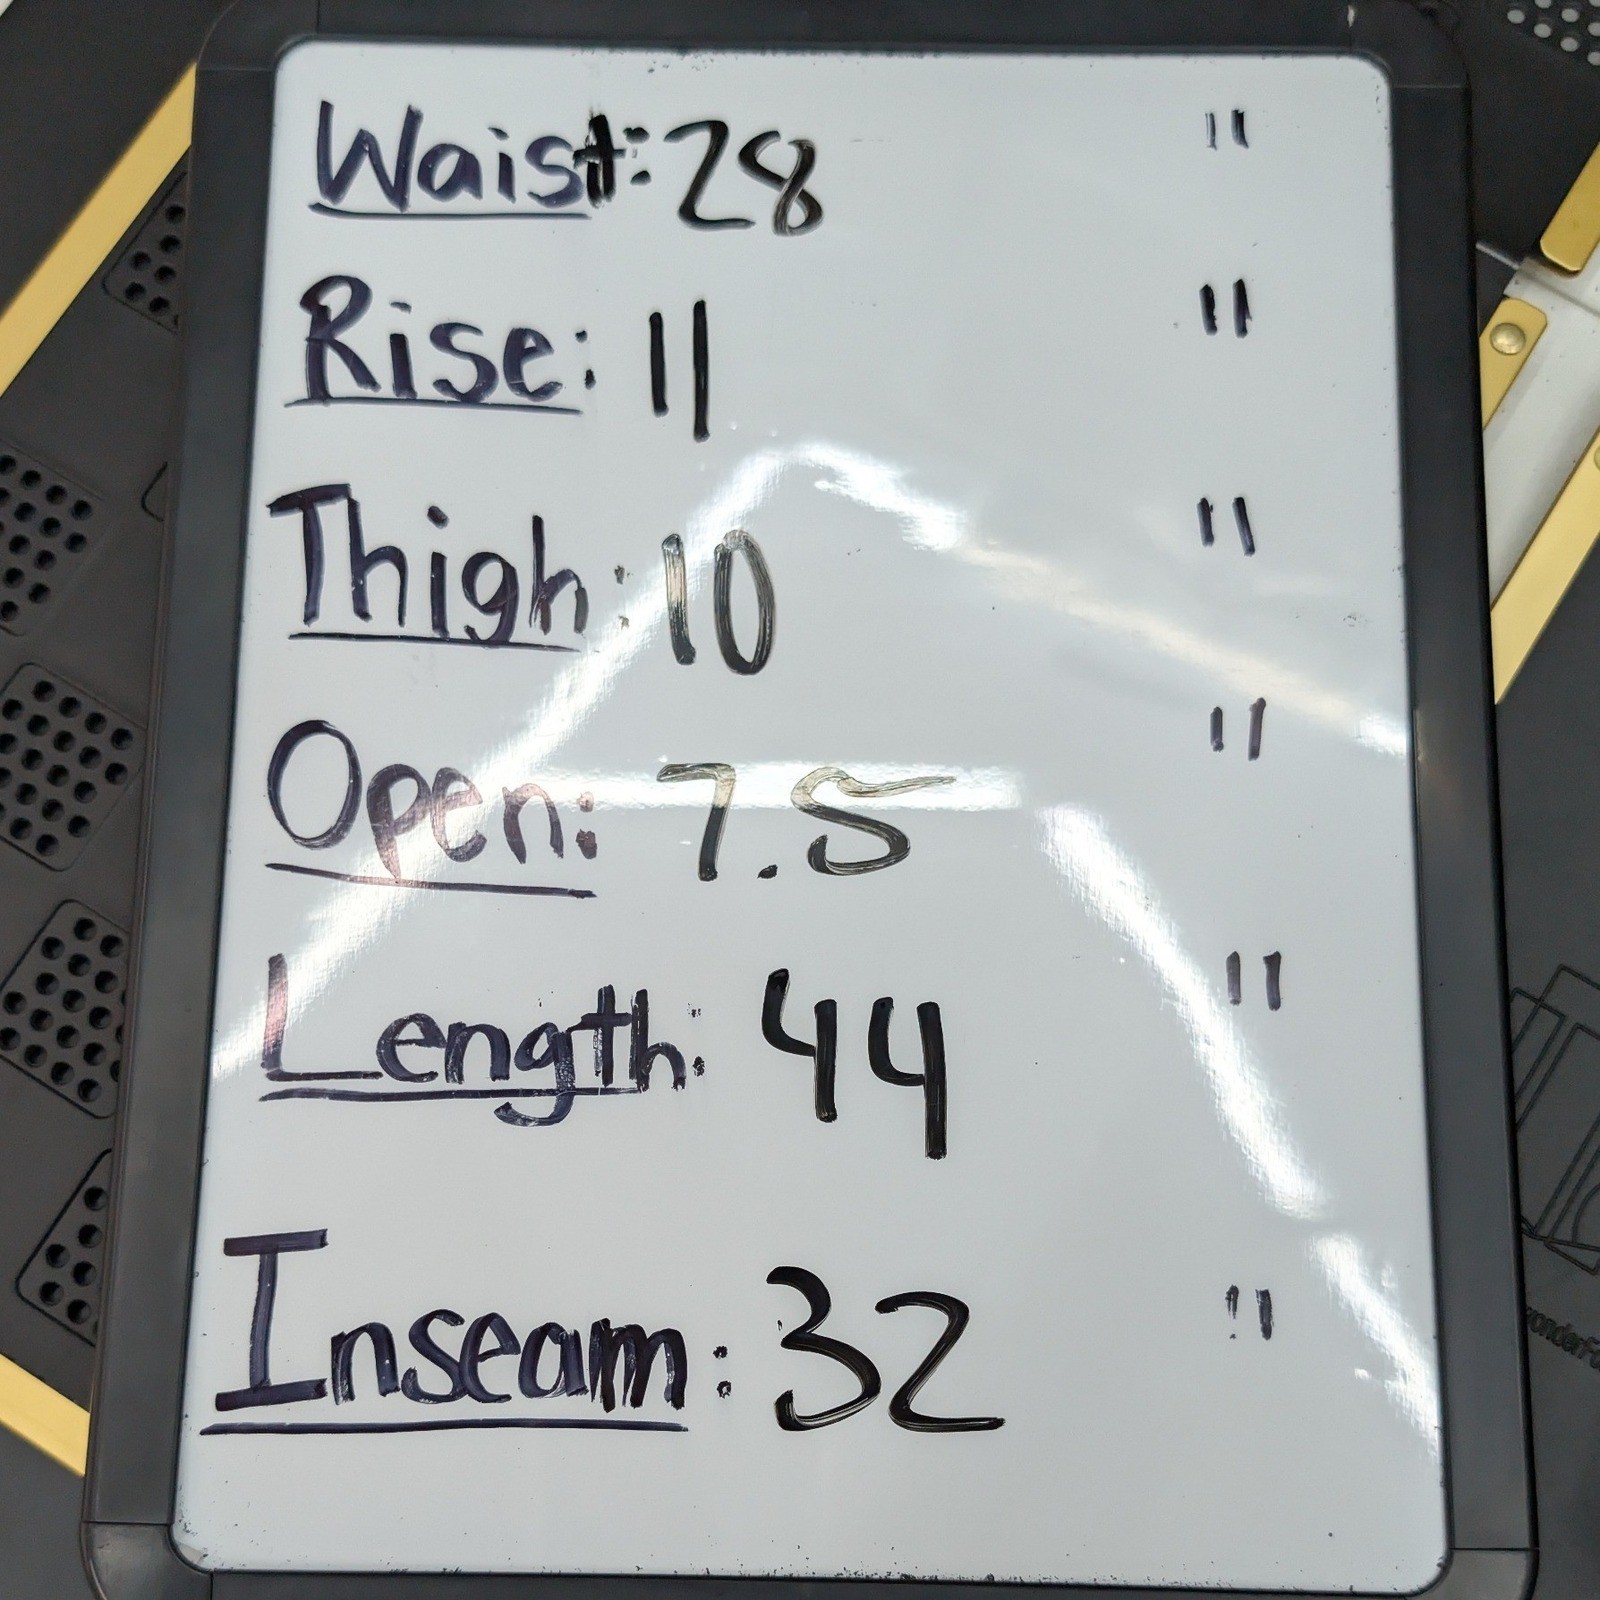 Waist: 28 "
Rise: 11 "
Thigh: 10 "
Open: 7.5 "
Length: 44 "
Inseam: 32 "